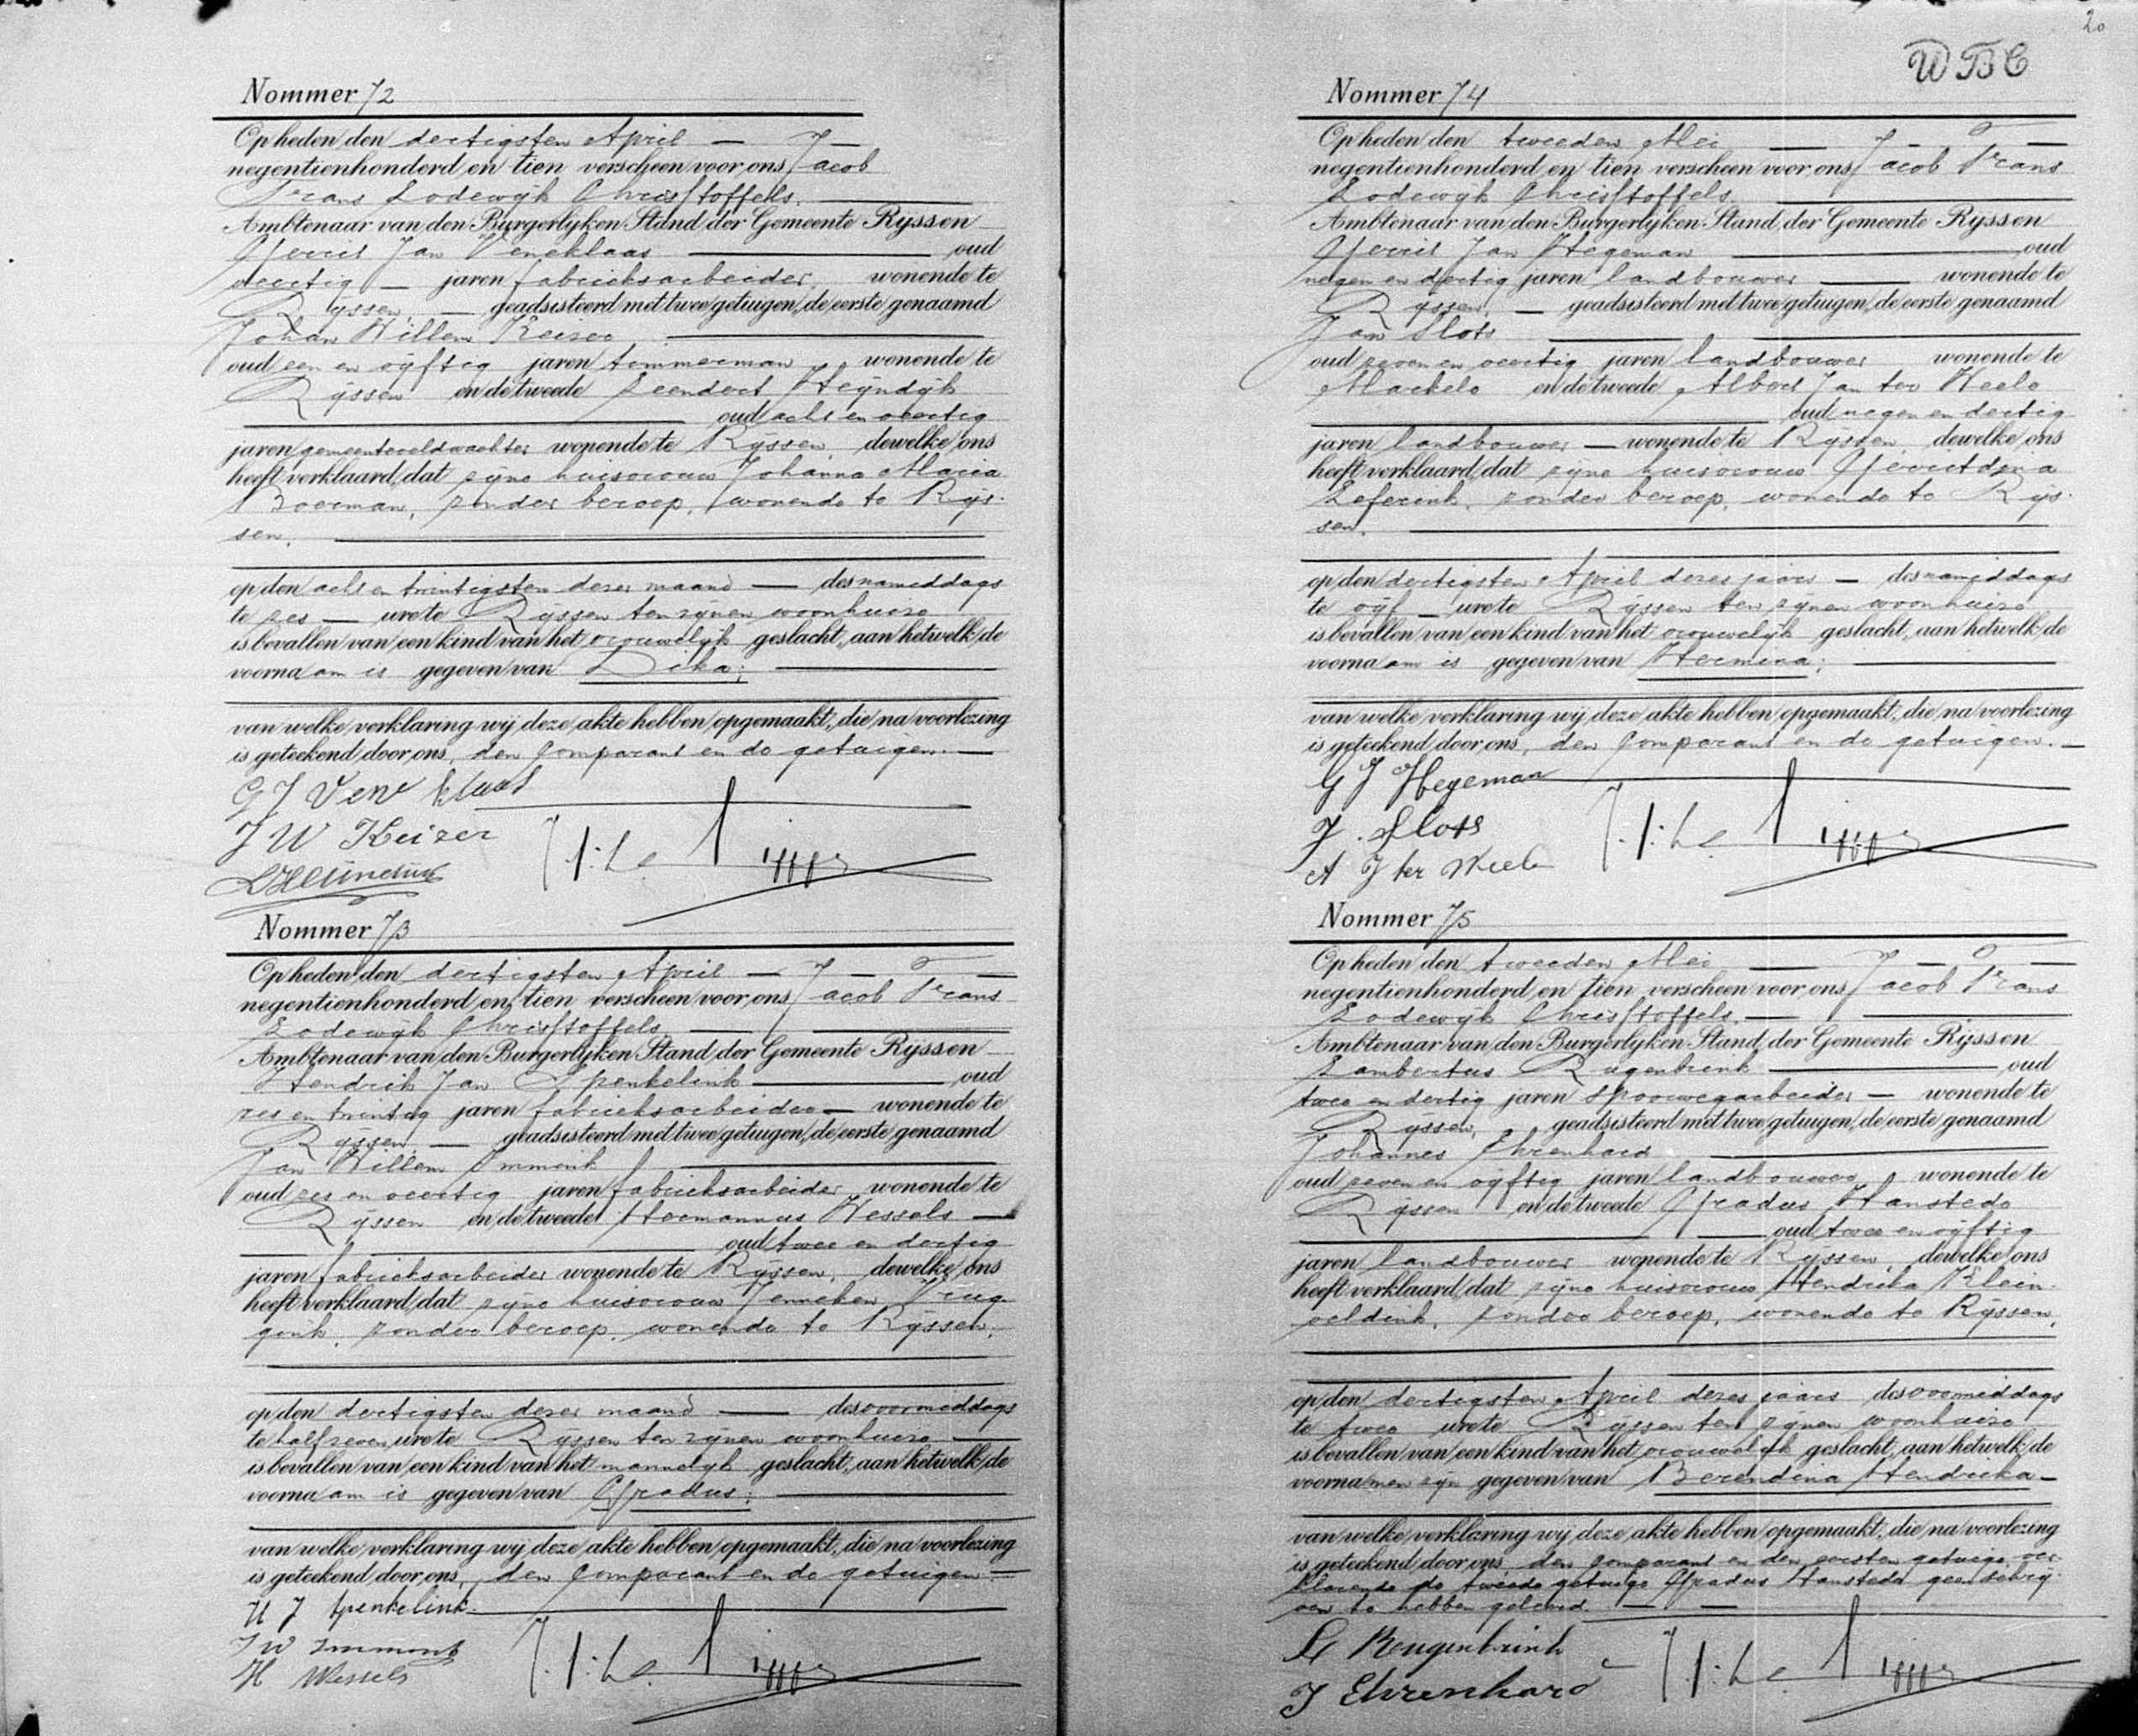 Nommer 72
Op heden den dertigsten April —
negentienhonderd en tien verscheen voor ons Jacob
Frans Lodewijk Christoffels,
Ambtenaar van den Burgerlijken Stand der Gemeente Rijssen
Gerrit Jan Veneklaas — oud
veertig — jaren fabrieksarbeider, wonende te
Rijssen, — geadsisteerd met twee getuigen, de eerste genaamd
Johan Willem Keizer
oud een en vijftig jaren timmerman wonende te
Rijssen en de tweede Leendert Heijndijk
oud acht en veertig
jaren gemeenteveldwachter wonende te Rijssen, dewelke ons
heeft verklaard, dat zijne huisvrouw Johanna Maria
Boerman, zonder beroep, wonende te Rijs-
sen,
op den acht en twintigsten dezer maand — des nameddags
te zes — ure te Rijssen ten zijnen woonhuize
is bevallen van een kind van het vrouwelijk geslacht, aan hetwelk de
voornaam is gegeven van Dika;
van welke verklaring wij deze akte hebben opgemaakt, die na voorlezing
is geteekend door ons, den Comparant en de getuigen. —
G J Veneklaas
J W Keizer
L Heijndijk
Nommer 73
Op heden den dertigsten April —
negentienhonderd en tien verscheen voor ons Jacob Frans
Lodewijk Christoffels
Ambtenaar van den Burgerlijken Stand der Gemeente Rijssen
Hendrik Jan Spenkelink — oud
zes en twintig jaren fabrieksarbeider — wonende te
Rijssen, — geadsisteerd met twee getuigen, de eerste genaamd
Jan Willem Immink
oud zes en veertig jaren fabrieksarbeider wonende te
Rijssen en de tweede Hermannus Wessels —
oud twee en dertig
jaren fabrieksarbeider wonende te Rijssen, dewelke ons
heeft verklaard, dat zijne huisvrouw Jenneken Frug-
gink, zonder beroep, wonende te Rijssen,
op den dertigsten dezer maand — des voormiddags
te half zeven ure te Rijssen ten zijnen woonhuize —
is bevallen van een kind van het mannelijk geslacht, aan hetwelk de
voornaam is gegeven van Gradus;
van welke verklaring wij deze akte hebben opgemaakt, die na voorlezing
is geteekend door ons, den Comparant en de getuigen —
H J Spenkelink.
J W Immink
H Wessels
20
WBC
Nommer 74
Op heden den tweeden Mei —
negentienhonderd en tien verscheen voor ons Jacob Frans
Lodewijk Christoffels
Ambtenaar van den Burgerlijken Stand der Gemeente Rijssen
Gerrit Jan Hegeman — oud
negen en dertig jaren landbouwer — wonende te
Rijssen, — geadsisteerd met twee getuigen, de eerste genaamd
Jan Slots
oud zeven en veertig jaren landbouwer wonende te
Markelo en de tweede Albert Jan ter Weele
oud negen en dertig
jaren landbouwer — wonende te Rijssen, dewelke ons
heeft verklaard, dat zijne huisvrouw Gerritdina
Leferink, zonder beroep, wonende te Rijs-
sen,
op den dertigsten April dezes jaars — des namiddags
te vijf — ure te Rijssen ten zijnen woonhuize
is bevallen van een kind van het vrouwelijk geslacht, aan hetwelk de
voornaam is gegeven van Hermina;
van welke verklaring wij deze akte hebben opgemaakt, die na voorlezing
is geteekend door ons, den Comparant en de getuigen. —
G J Hegeman
J. Slots
A J ter Weele
Nommer 75
Op heden den tweeden Mei —
negentienhonderd en tien verscheen voor ons Jacob Frans
Lodewijk Christoffels, —
Ambtenaar van den Burgerlijken Stand der Gemeente Rijssen
Lambertus Rugenbrink — oud
twee en dertig jaren spoorwegarbeider — wonende te
Rijssen, geadsisteerd met twee getuigen, de eerste genaamd
Johannes Ehrenhard
oud zeven en vijftig jaren landbouwer wonende te
Rijssen en de tweede Gradus Hanstede
oud twee en vijftig
jaren landbouwer wonende te Rijssen, dewelke ons
heeft verklaard, dat zijne huisvrouw Hendrika Klein-
veldink, zonder beroep, wonende te Rijssen,
op den dertigsten April dezes jaars des voormiddags
te twee ure te Rijssen ten zijnen woonhuize
is bevallen van een kind van het vrouwelijk geslacht, aan hetwelk de
voornamen zijn gegeven van Berendina Hendrika —
van welke verklaring wij deze akte hebben opgemaakt, die na voorlezing
is geteekend door ons den Comparant en den eersten getuige, ver-
klarende de tweede getuige Gradus Hanstede geen schrij-
ven te hebben geleerd. —
L Rengenbrink
J Ehrenhard